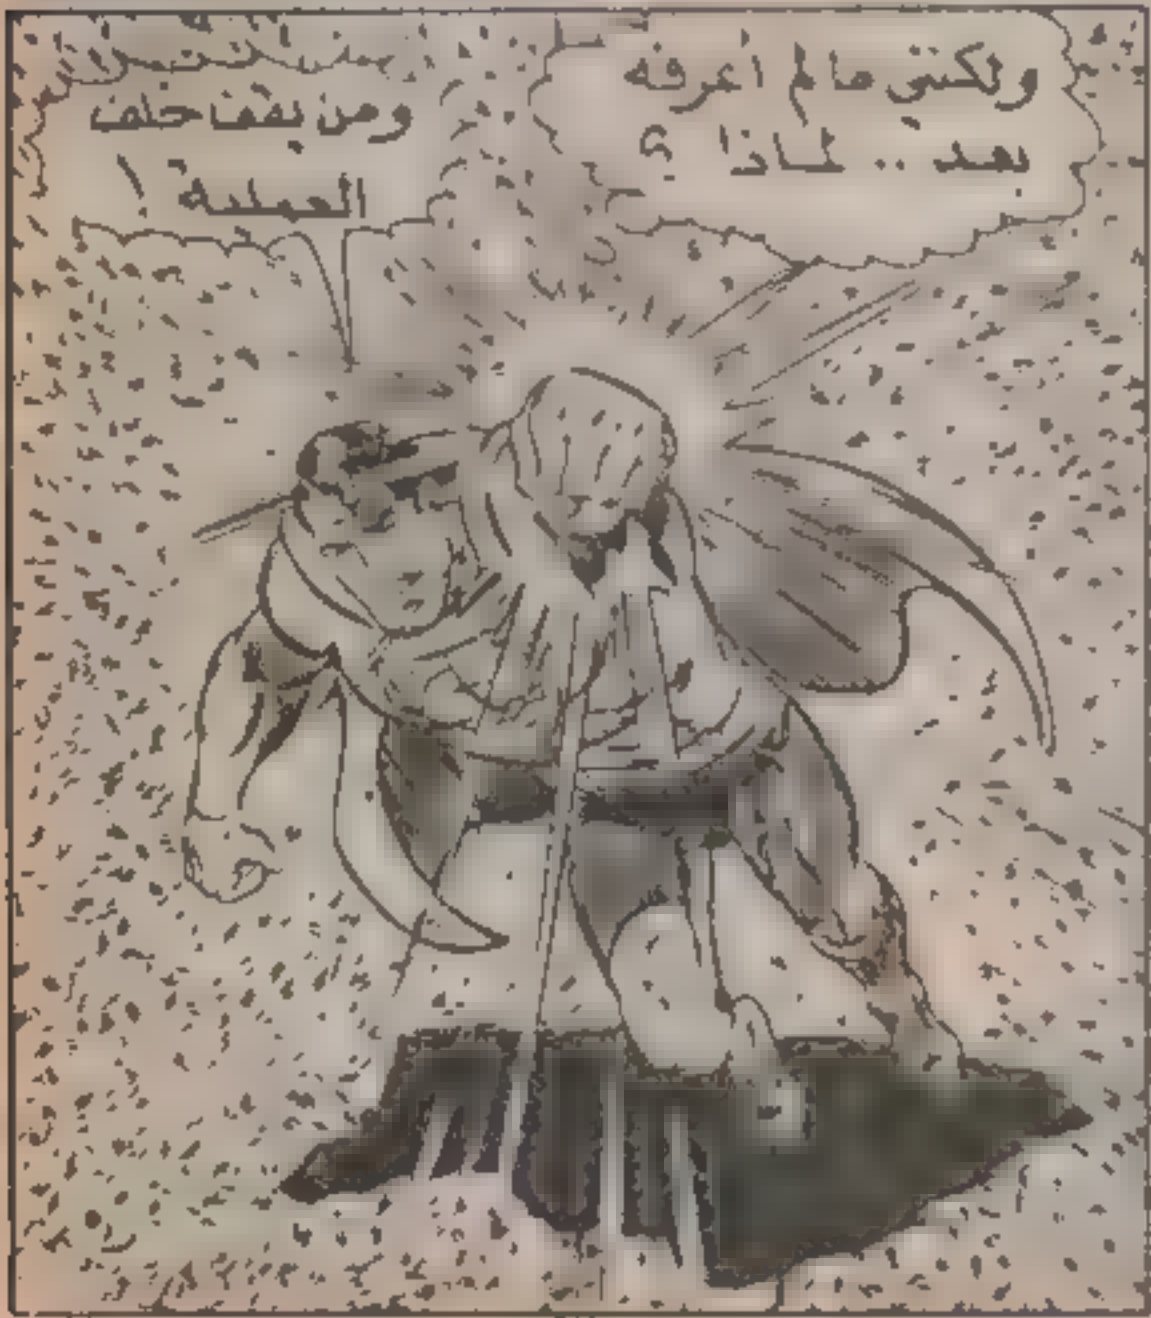 ولكني ما لم أعرفه
بعد .. لماذا ؟
ومن يقف خلف
العملية !